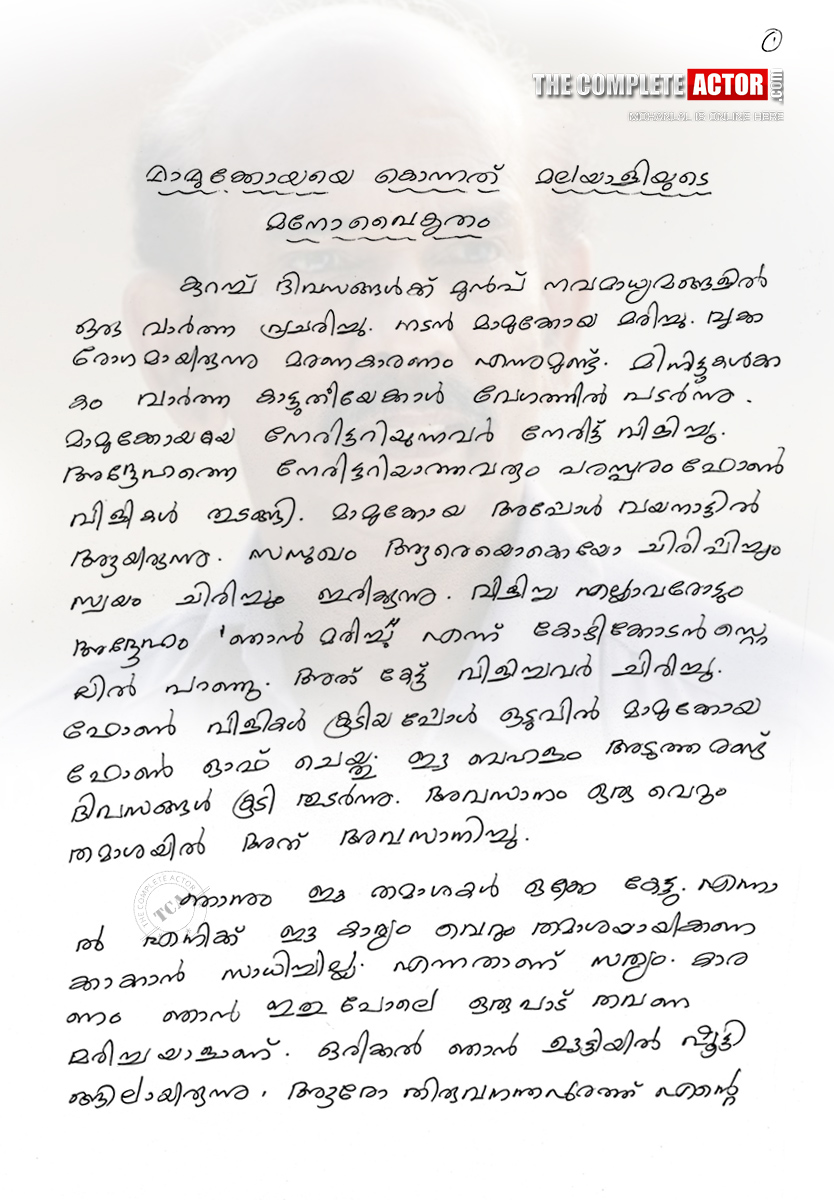 ൧
THE COMPLETE ACTOR.com
MOHANLAL IS ONLINE HERE
മാമുക്കോയയെ കൊന്നത് മലയാളിയുടെ
മനോവൈകൃതം
കുറച്ച് ദിവസങ്ങൾക്ക് മുൻപ് നവമാധ്യമങ്ങളിൽ
ഒരു വാർത്ത പ്രചരിച്ചു. നടൻ മാമുക്കോയ മരിച്ചു. വൃക്ക
രോഗമായിരുന്നു മരണകാരണം എന്നുമുണ്ട്. മിനിട്ടുകൾക്ക
കം വാർത്ത കാട്ടുതീയേക്കാൾ വേഗത്തിൽ പടർന്നു.
മാമുക്കോയയെ നേരിട്ടറിയുന്നവർ നേരിട്ട് വിളിച്ചു.
അദ്ദേഹത്തെ നേരിട്ടറിയാത്തവരും പരസ്പരം ഫോൺ
വിളികൾ തുടങ്ങി. മാമുക്കോയ അപ്പോൾ വയനാട്ടിൽ
ആയിരുന്നു. സസുഖം ആരെയൊക്കെയോ ചിരിപ്പിച്ചും
സ്വയം ചിരിച്ചും ഇരിക്കുന്നു. വിളിച്ച എല്ലാവരോടും
അദ്ദേഹം 'ഞാൻ മരിച്ചു' എന്ന് കോഴിക്കോടൻ സ്റ്റൈ
ലിൽ പറഞ്ഞു. അത് കേട്ട് വിളിച്ചവർ ചിരിച്ചു.
ഫോൺ വിളികൾ കൂടിയപ്പോൾ ഒടുവിൽ മാമുക്കോയ
ഫോൺ ഓഫ് ചെയ്തു. ഈ ബഹളം അടുത്ത രണ്ട്
ദിവസങ്ങൾ കൂടി തുടർന്നു. അവസാനം ഒരു വെറും
തമാശയിൽ അത് അവസാനിച്ചു.
ഞാനും ഈ തമാശകൾ ഒക്കെ കേട്ടു. എന്നാ
ൽ എനിക്ക് ഈ കാര്യം വെറും തമാശയായിക്കണ
ക്കാക്കാൻ സാധിച്ചില്ല. എന്നതാണ് സത്യം. കാര
ണം ഞാൻ ഇതുപോലെ ഒരുപാട് തവണ
മരിച്ചയാളാണ്. ഒരിക്കൽ ഞാൻ ഊട്ടിയിൽ ഷൂട്ടി
ങ്ങിലായിരുന്നു. ആരോ തിരുവനന്തപുരത്ത് എന്റെ
THE COMPLETE ACTOR
TCA